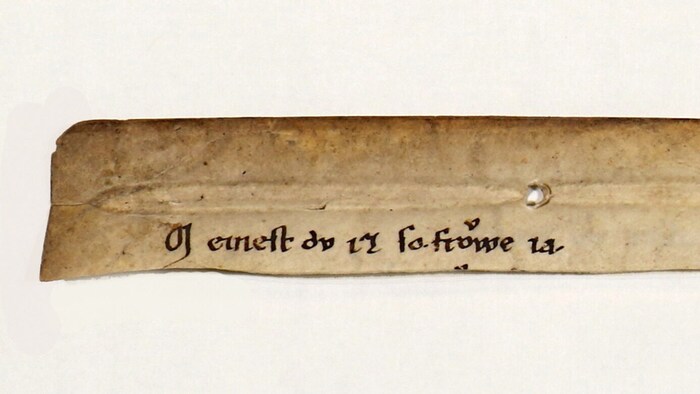 M eineſt dv iz ſo. froͮwe ia.